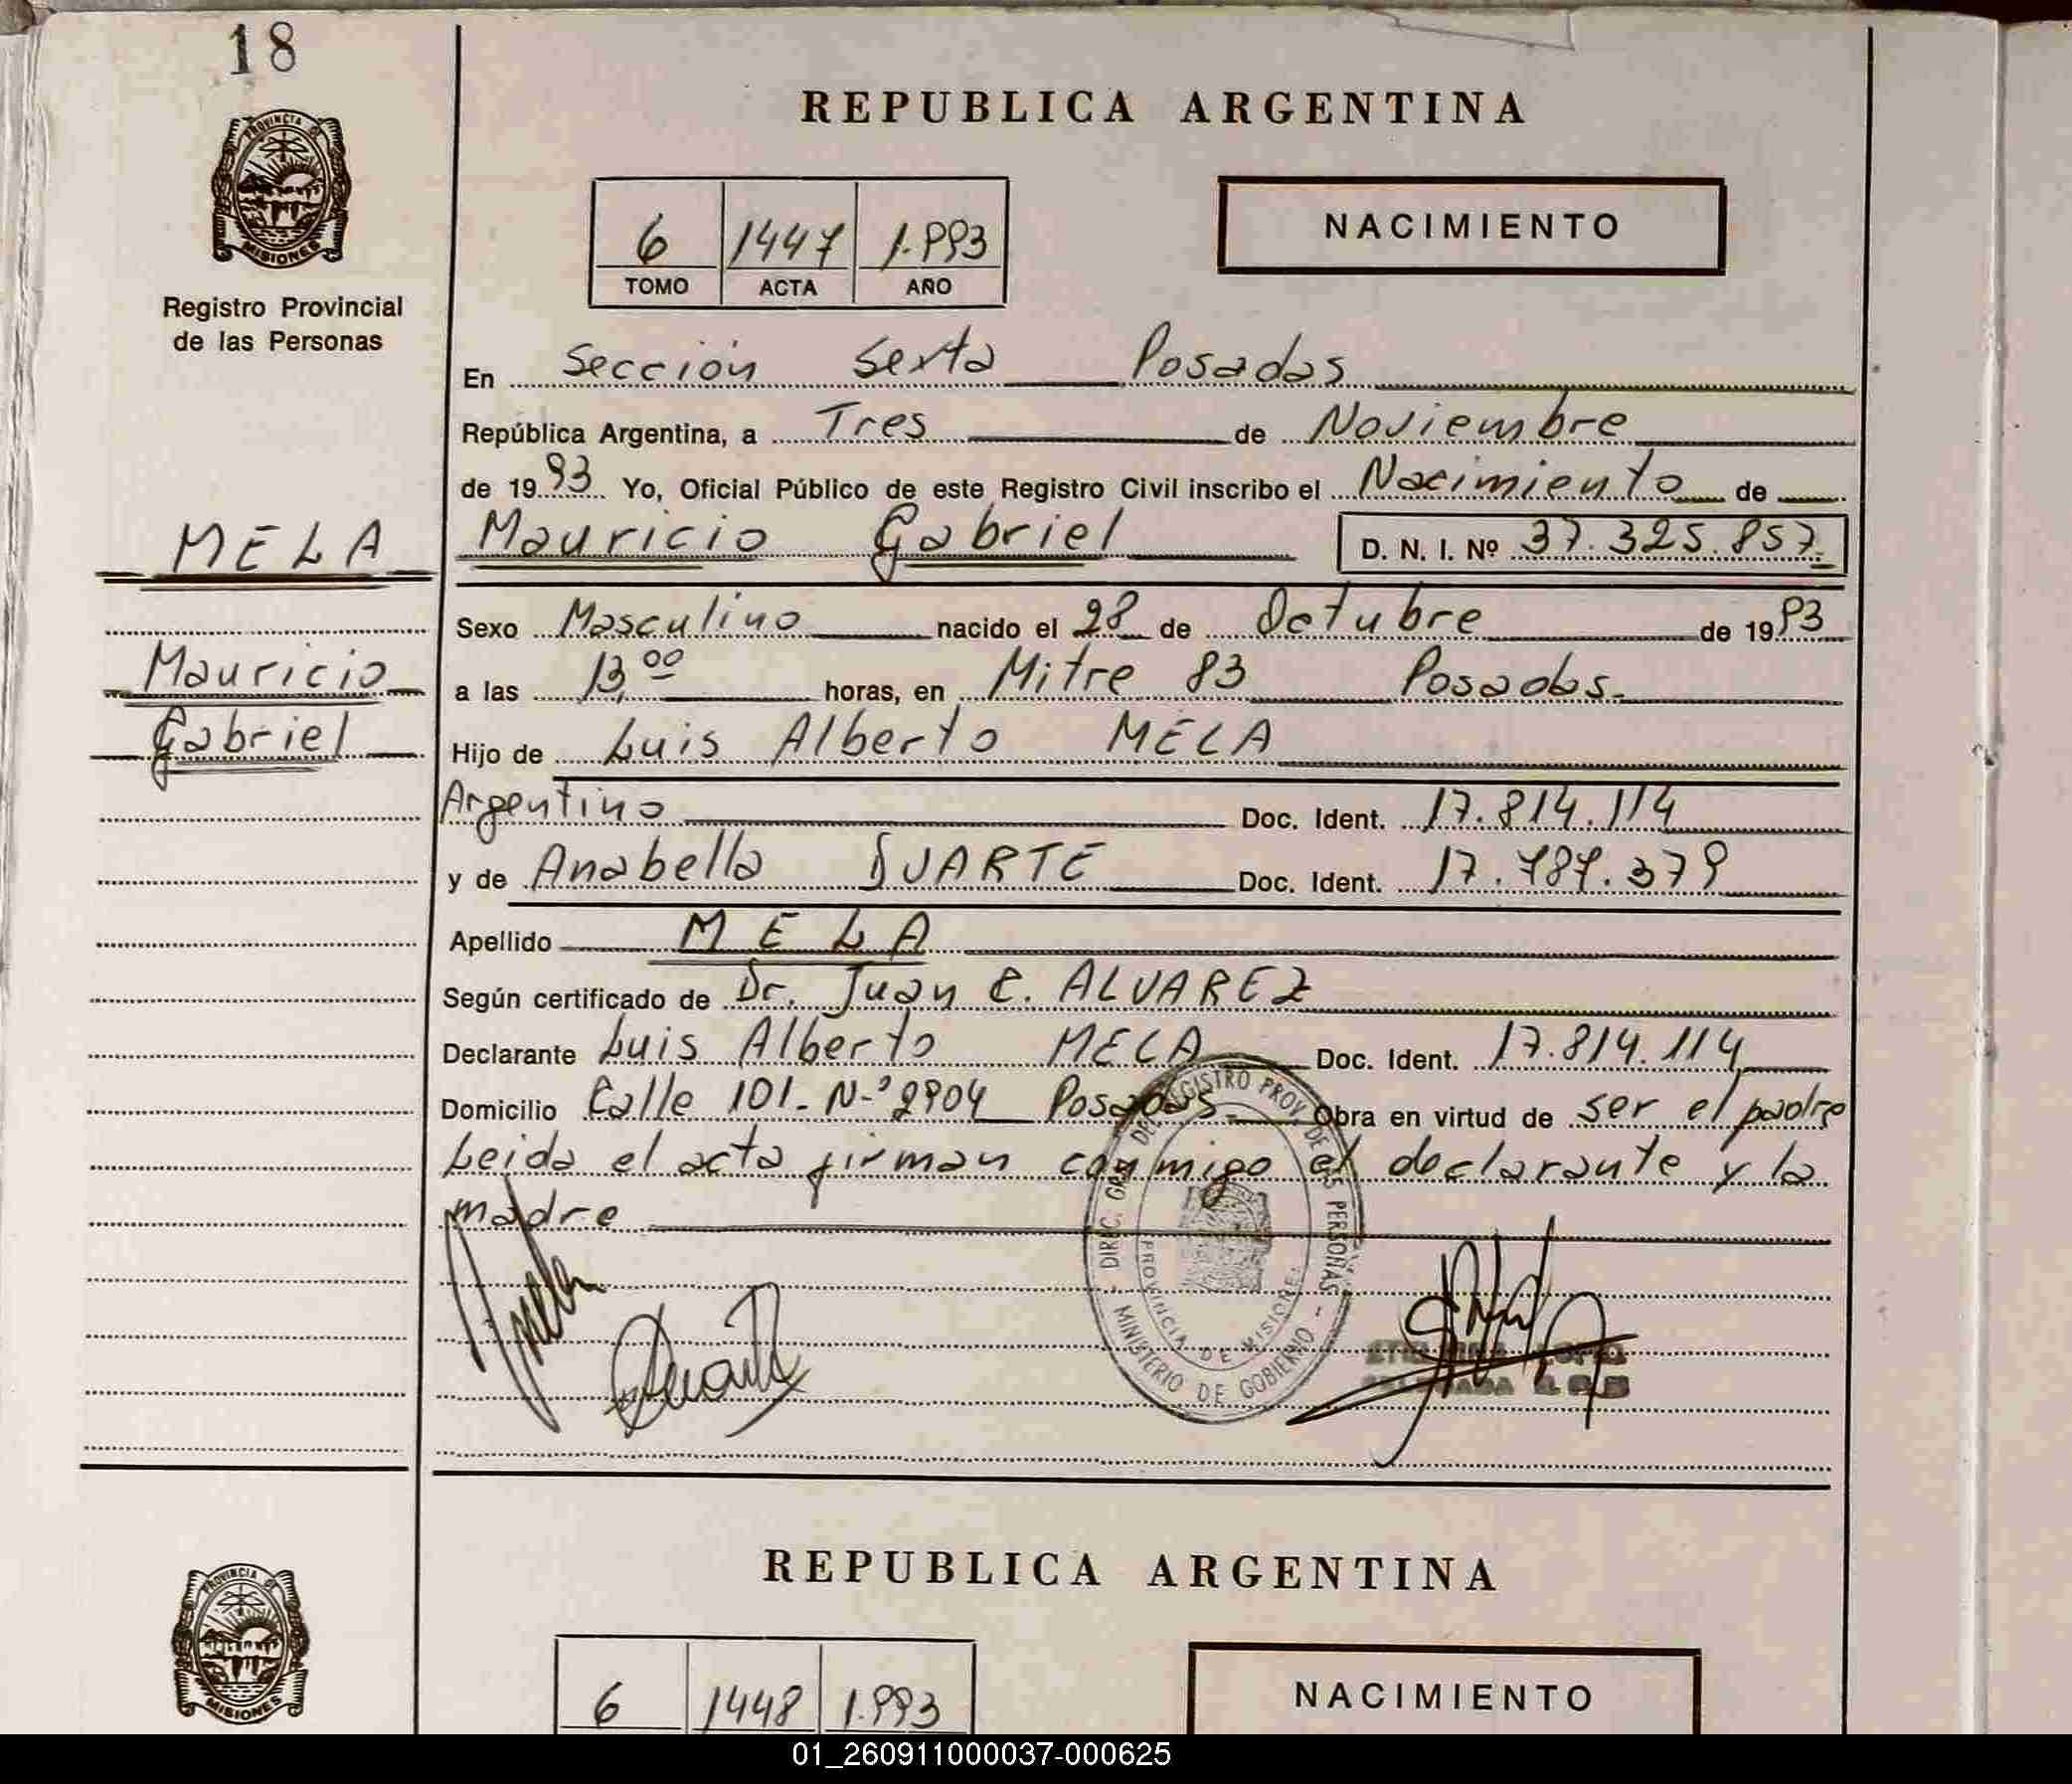 18
PROVINCIA DE
MISIONES
Registro Provincial
de las Personas
REPUBLICA ARGENTINA
6 1447 1.993
TOMO ACTA AÑO
NACIMIENTO
En Sección Sexta Posadas
República Argentina, a Tres de Noviembre
de 1993 Yo, Oficial Público de este Registro Civil inscribo el Nacimiento de
MELA
Mauricio Gabriel D. N. I. Nº 37.325.857
Sexo Masculino nacido el 28 de Octubre de 1993
Mauricio
a las 13,00 horas, en Mitre 83 Posadas
Gabriel
Hijo de Luis Alberto MELA
Argentino Doc. Ident. 17.814.114
y de Anabella DUARTE Doc. Ident. 17.787.379
Apellido MELA
Según certificado de Dr. Juan C. ALVAREZ
Declarante Luis Alberto MELA Doc. Ident. 17.814.114
Domicilio Calle 101 - N-º 2904 Posadas Obra en virtud de ser el padre
Leida el acta firman conmigo el declarante y la
madre
DIREC. GRAL DEL REGISTRO PROV. DE LAS PERSONAS
MINISTERIO DE GOBIERNO
PROVINCIA DE MISIONES
REPUBLICA ARGENTINA
PROVINCIA DE
MISIONES
6 1448 1.993
NACIMIENTO
01_260911000037-000625